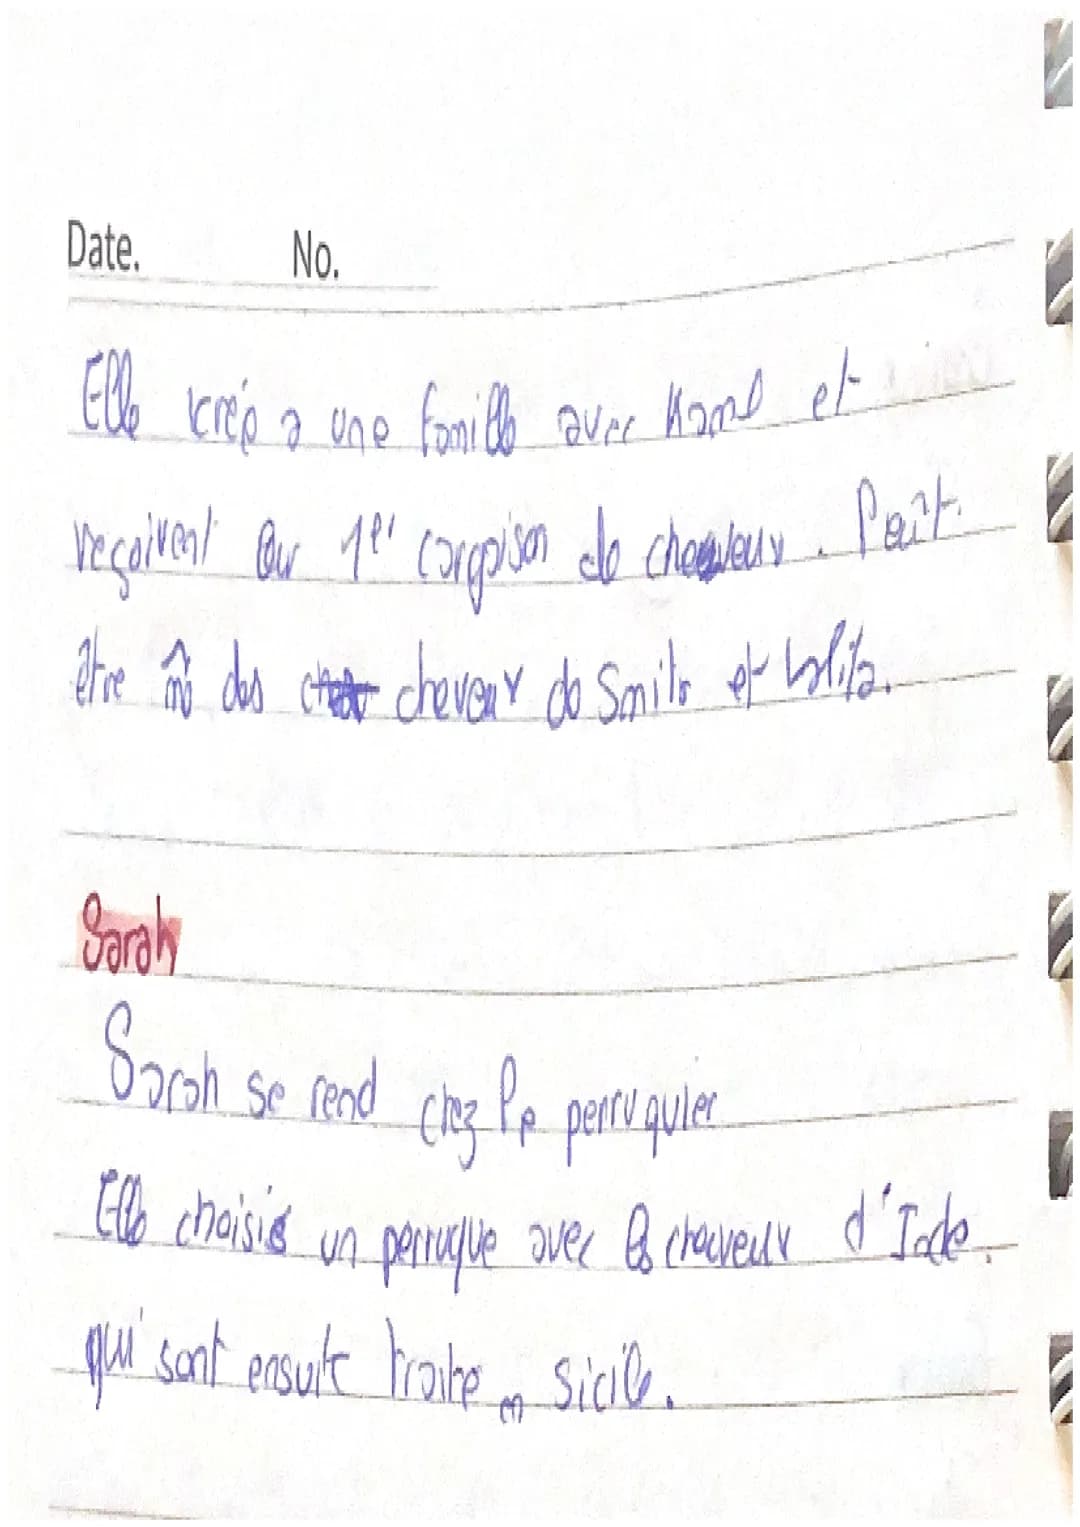 Date. No.
Elle krép a une famille avec Kamal et
reçoivent 1er cargaison de cheveux. Peut
être m̂ des cheveux de Smita et Lalita.
Sarah
Sarah se rend chez le perruquier
Elle choisis un perruque avec les cheveux d'Inde.
qui sont ensuite traite en Sicile.